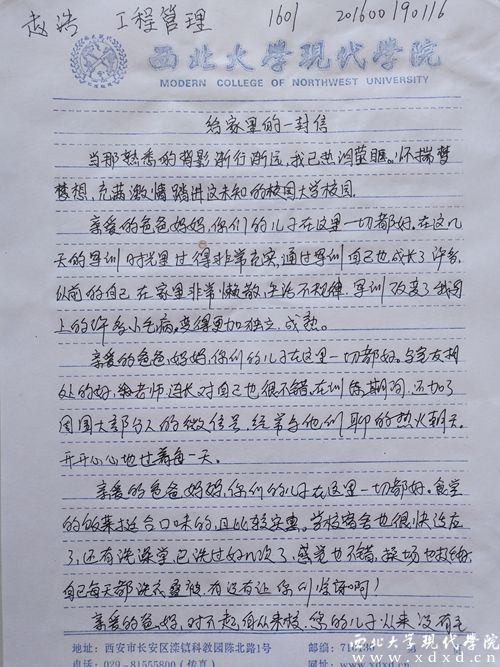 赵浩 工程管理 1601 201600190116
西北大學現代學院
MODERN COLLEGE OF NORTHWEST UNIVERSITY
给家里的一封信
当那熟悉的背影渐行渐远,我已热泪萤眶。怀揣梦
梦想,充满激情踏进这未知的校园大学校园。
亲爱的爸爸妈妈,你们的儿子在这里一切都好。在这几
天的军训时光里过得非常充实,通过军训自己也成长了许多,
以前的自己在家里非常懒散,生活不规律,军训改变了我身
上的许多小毛病,变得更加独立,成熟。
亲爱的爸爸,妈妈,你们的儿子在这里一切都好。与室友相
处的好,老师,连长,对自己也很不错,在训练期间,还加了
周围大部分人的微信号,经常与他们聊的热火朝天。
开开心心地过着每一天。
亲爱的爸爸妈妈,你们的儿子在这里一切都好。食堂
的饭菜挺合口味的,且比较实惠。学校宿舍也很快适应
了,还有洗澡堂,已洗过好几次了,感觉也不错,操场也挺
自己每天都洗衣叠被,有没有让你们惊讶啊!
亲爱的爸妈,对不起,自从来校,您的儿子从来没有
地址:西安市长安区滦镇科教园陈北路1号 邮编:
电话:029-81555800(传真)
西北大学现代学院
www.xdxd.cn